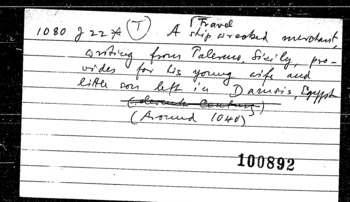 Travel
1080 J 22* (T) A shipwrecked merchant,
writing from Palermo, Sicily, pro-
vides for his young wife and
little son left in Damsis, Egypt
(eleventh Century)
(Around 1040)
100892